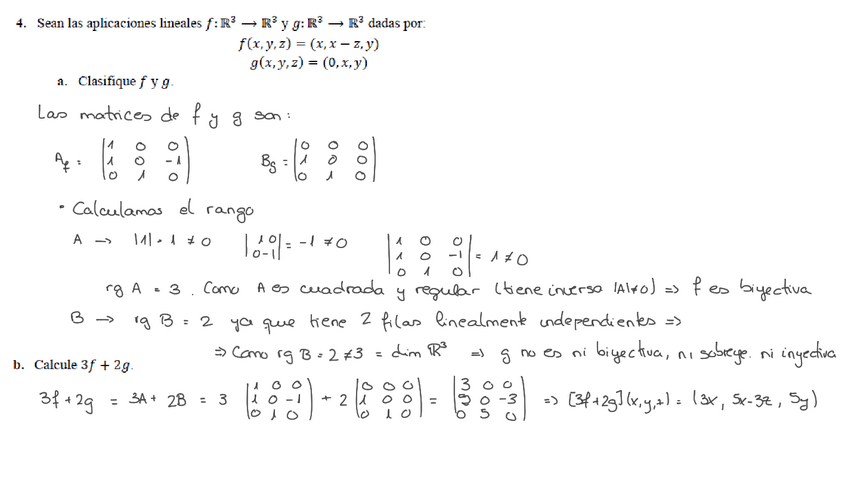 4. Sean las aplicaciones lineales f:ℝ³ → ℝ³ y g:ℝ³ → ℝ³ dadas por:
f(x,y,z) = (x,x − z,y)
g(x,y,z) = (0,x,y)
a. Clasifique f y g.
Las matrices de f y g son:
A_f = (1 0 0 / 1 0 -1 / 0 1 0) B_g = (0 0 0 / 1 0 0 / 0 1 0)
• Calculamos el rango
A → |1| = 1 ≠ 0 |1 0 / 0 -1| = -1 ≠ 0 |1 0 0 / 1 0 -1 / 0 1 0| = 1 ≠ 0
rg A = 3. Como A es cuadrada y regular (tiene inversa |A|≠0) => f es biyectiva
B → rg B = 2 ya que tiene 2 filas linealmente independientes =>
=> Como rg B = 2 ≠ 3 = dim ℝ³ => g no es ni biyectiva, ni sobreye. ni inyectiva
b. Calcule 3f + 2g.
3f + 2g = 3A + 2B = 3 (1 0 0 / 1 0 -1 / 0 1 0) + 2 (0 0 0 / 1 0 0 / 0 1 0) = (3 0 0 / 5 0 -3 / 0 5 0) => [3f+2g](x,y,z) = (3x, 5x-3z, 5y)